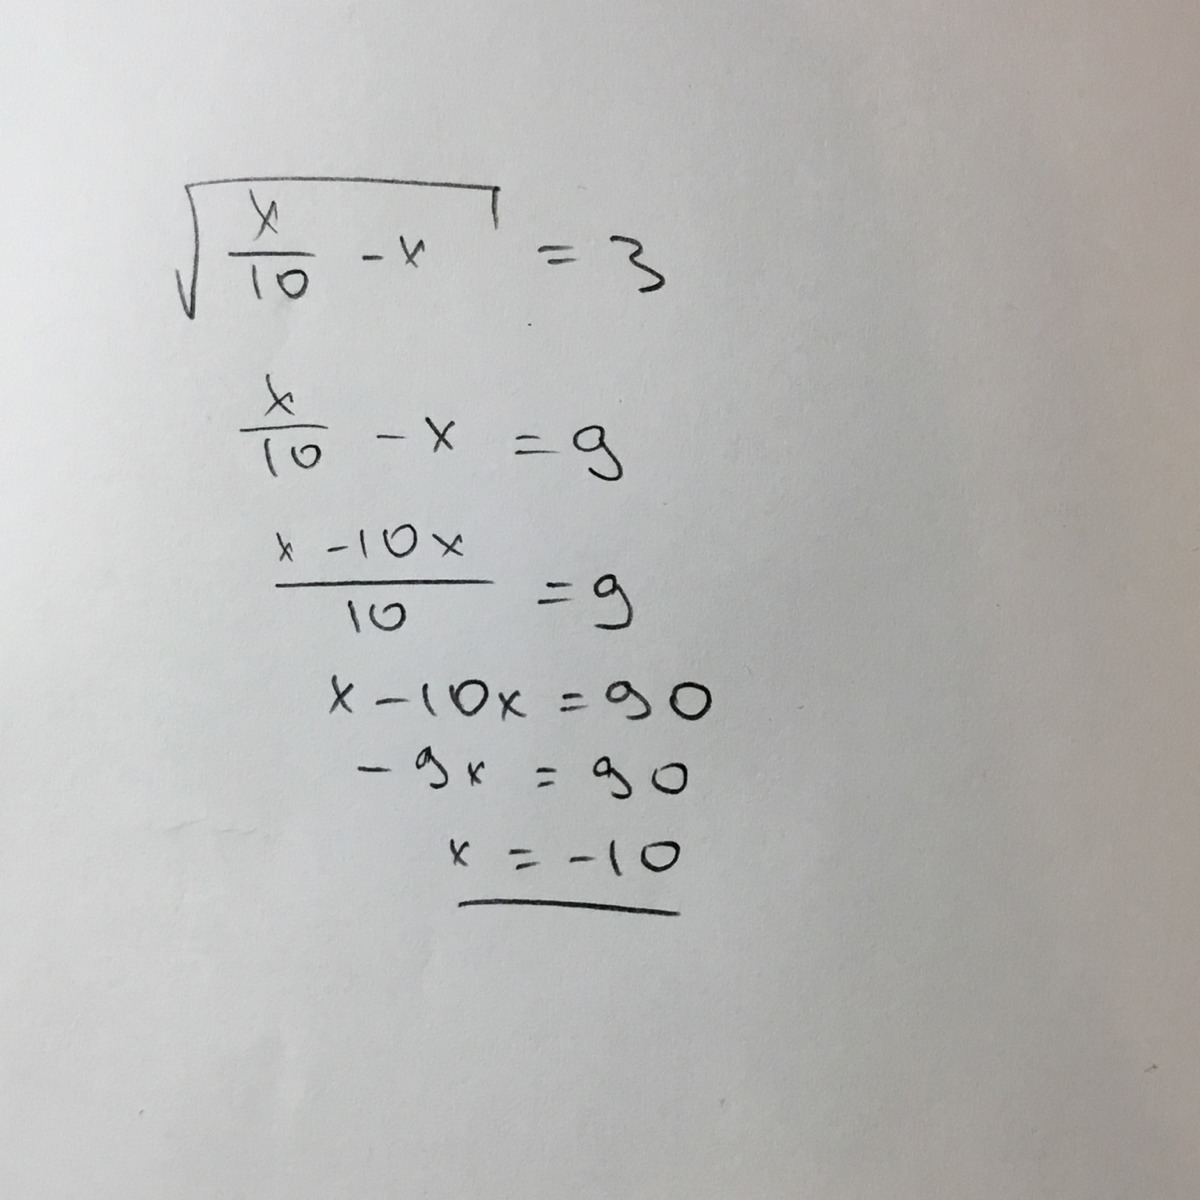 √(x/10 - x) = 3
x/10 - x = 9
(x - 10x)/10 = 9
x - 10x = 90
- 9x = 90
x = -10